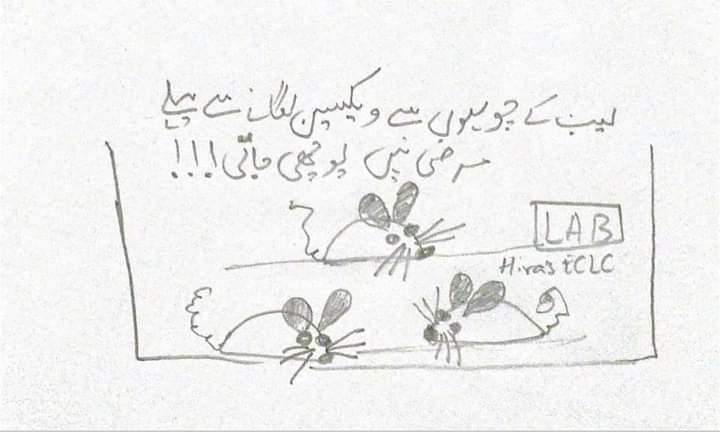 لیب کے چوہوں سے ویکسین لگانے سے پہلے
مرضی نہیں پوچھی جاتی!!!
LAB
Hira's tCLC